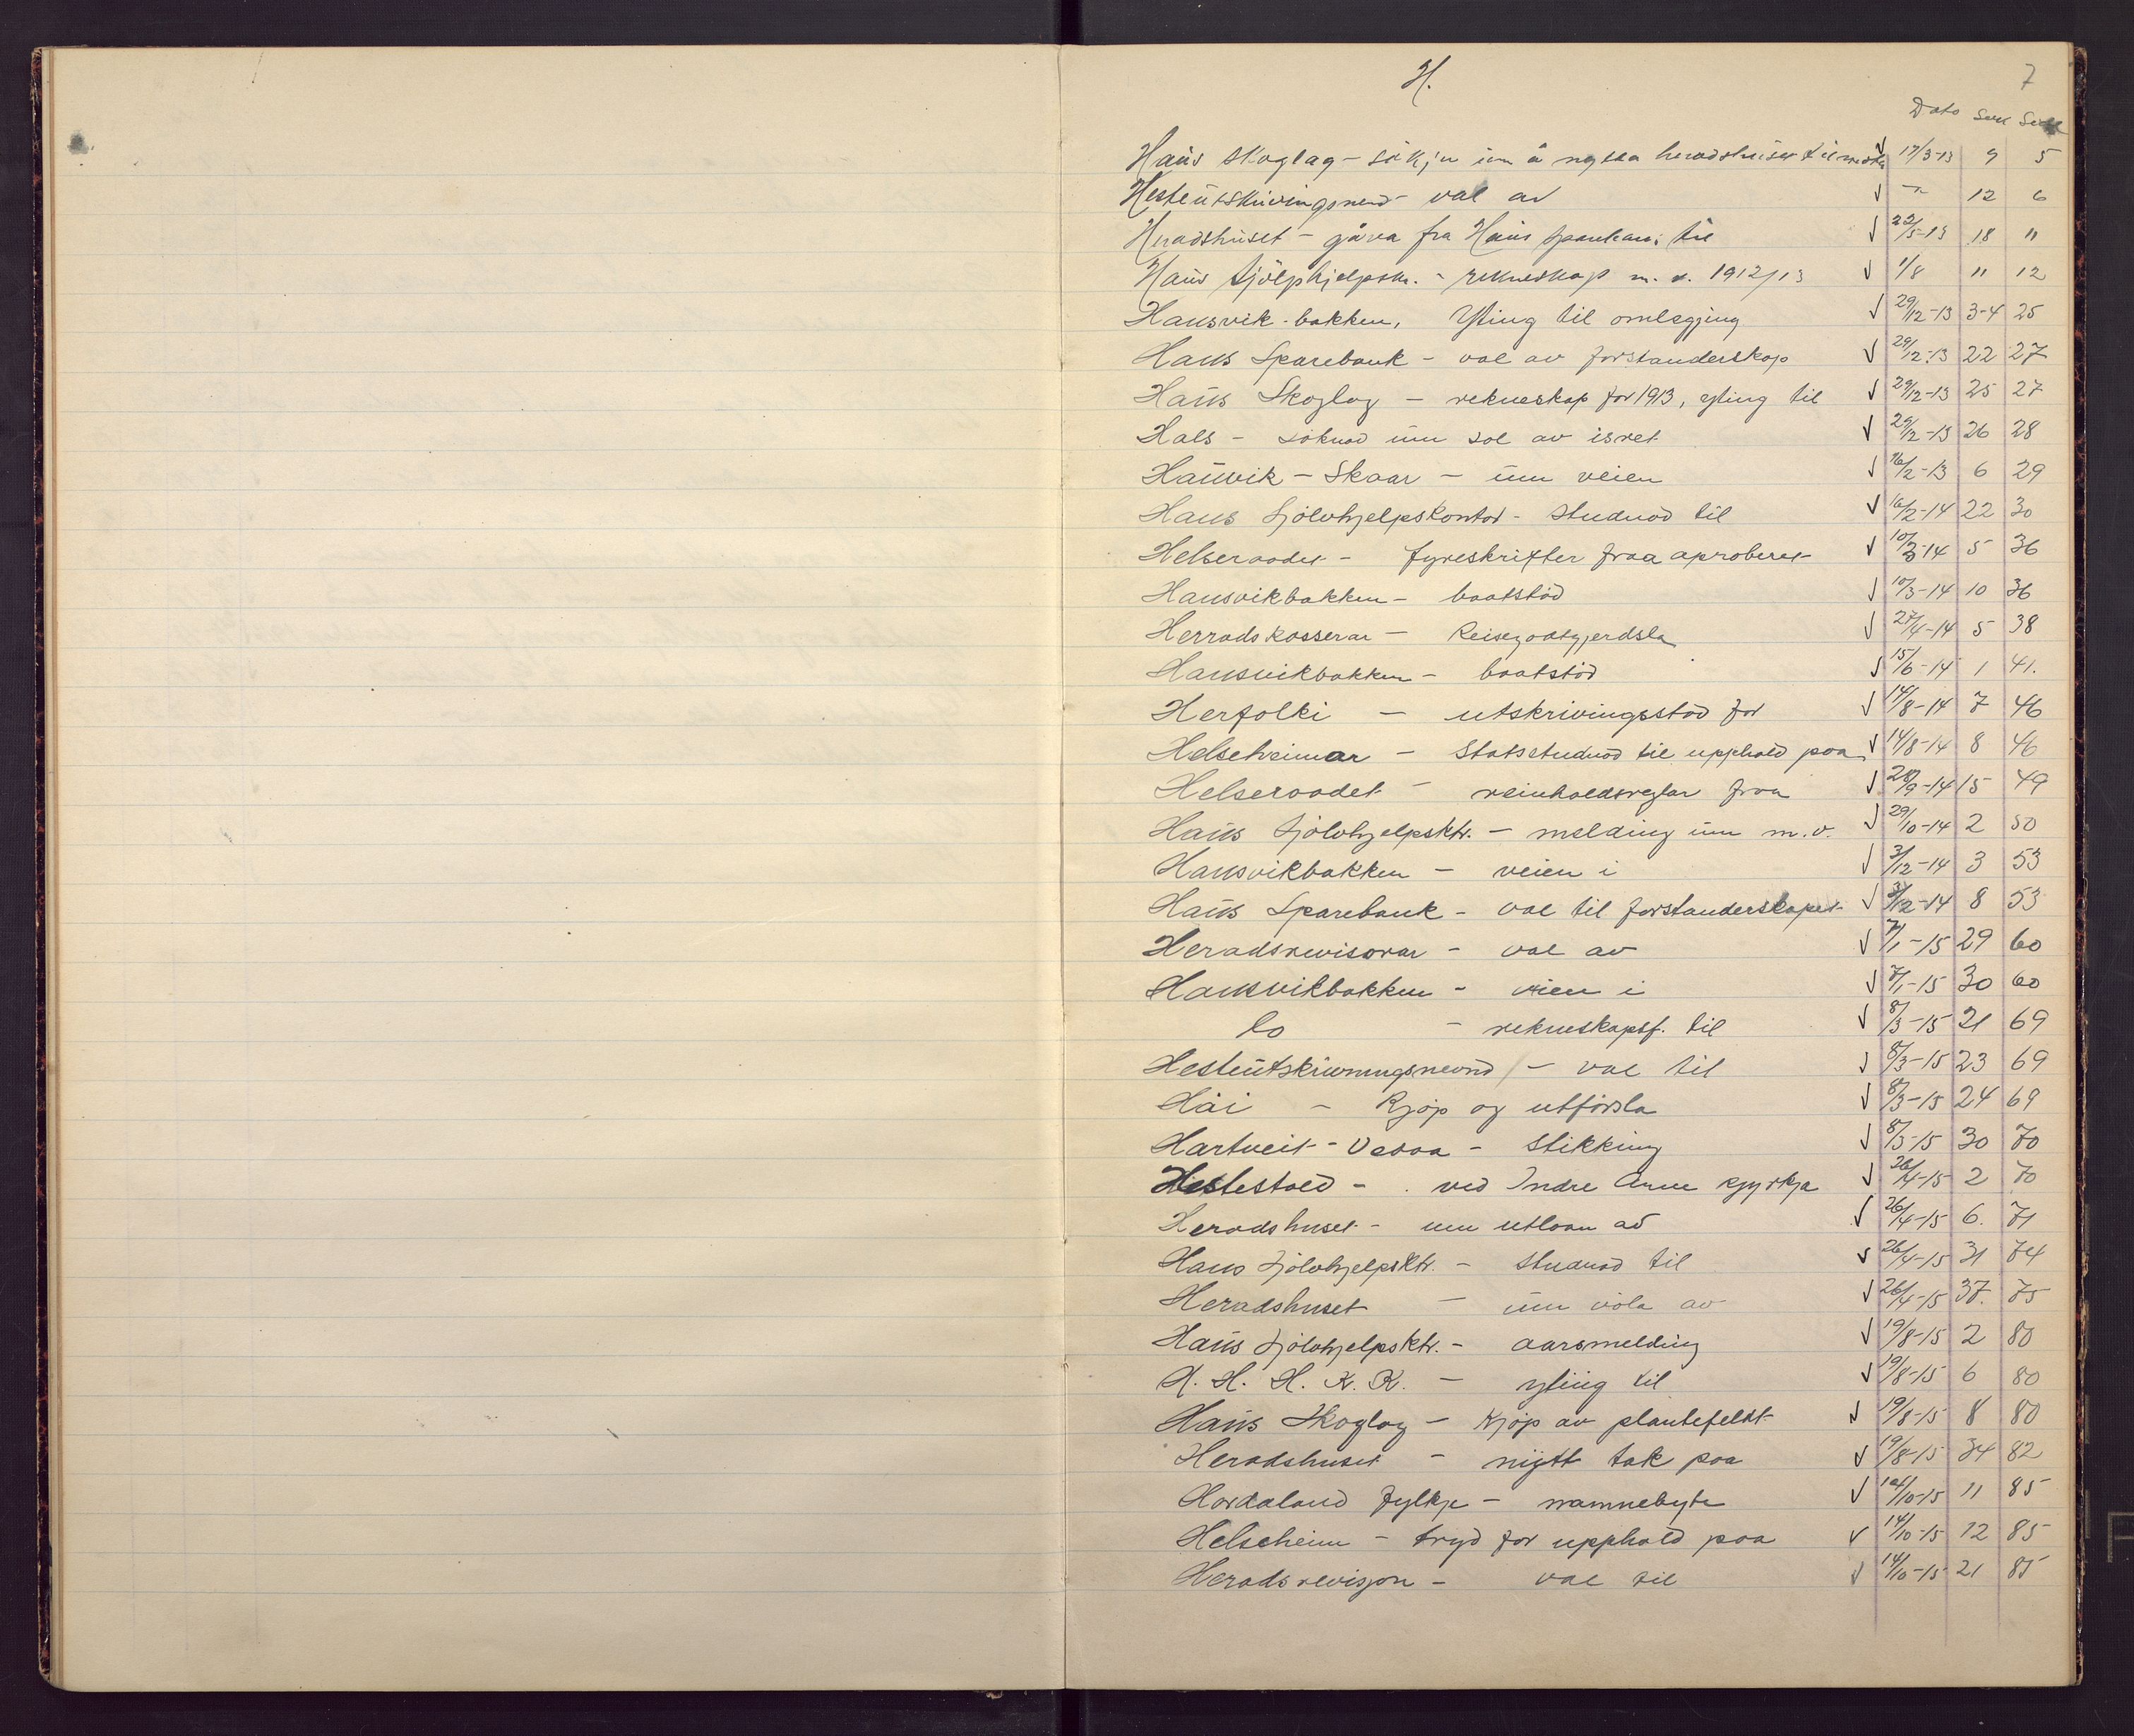 H.
7
Dato Sak Side
Haus Skoglag - søkje um å nytta heradshuset til ✓ 17/3-13 9 5
Hesteutskrivingsnemd - val av ✓ -"- 12 6
Heradshuset - gåva fra Haus Sparebank til ✓ 22/5-13 18 11
Haus Sjölvhjelpsk. - rekneskap m. v. 1912/13 ✓ 1/8 11 12
Hausvik-bakken, Yting til omlegging ✓ 29/12-13 3-4 25
Haus Sparebank - val av forstanderskap ✓ 29/12-13 22 27
Haus Skoglag - rekneskap for 1913, yting til ✓ 29/12-13 25 27
Hals - søknad um sol av isret ✓ 29/12-13 26 28
Hausvik - Skaar - um veien ✓ 16/2-13 6 29
Haus Sjölvhjelpskontor - studnad til ✓ 16/2-14 22 30
Helseraadet - fyreskrifter fraa aproberet ✓ 10/3-14 5 36
Hausvikbakken - baatstöd ✓ 10/3-14 10 36
Herradskasserar - Reisegodtgjerdsla ✓ 27/4-14 5 38
Hausvikbakken - baatstöd ✓ 15/6-14 1 41.
Herfolki - utskrivingsstad for ✓ 14/8-14 7 46
Helseheimar - Statsstudnad til upphald paa ✓ 14/8-14 8 46
Helseraadet - reinhaldsreglar fraa ✓ 28/9-14 15 49
Haus Sjölvhjelpsktr. - melding um m.v. ✓ 29/10-14 2 50
Hausvikbakken - veien i ✓ 3/12-14 3 53
Haus Sparebank - val til forstanderskapet ✓ 3/12-14 8 53
Heradsrevisorar - val av ✓ 7/1-15 29 60
Hausvikbakken - veien i ✓ 7/1-15 30 60
Do - rekneskapsf. til ✓ 8/3-15 21 69
Hesteutskrivningsnevnd - val til ✓ 8/3-15 23 69
Hái - Kjöp og utförsla ✓ 8/3-15 24 69
Hartveit - Vevaa - Stikking ✓ 8/3-15 30 70
Hestestald - ved Indre Arne kyrkja ✓ 26/4-15 2 70
Heradshuset - um utlaan av ✓ 26/4-15 6. 71
Haus Sjölvhjelpsktr. - studnad til ✓ 26/4-15 31 74
Heradshuset - um völa av ✓ 26/4-15 37. 75
Haus Sjölvhjelpsktr. - aarsmelding ✓ 19/8-15 2 80
H. H. H. K. K. - yting til ✓ 19/8-15 6 80
Haus Skoglag - Kjöp av plantefeldt ✓ 19/8-15 8 80
Heradshuset - nytt tak paa ✓ 19/8-15 34 82
Hordaland fylkje - namnebyte ✓ 14/10-15 11 85
Helseheim - tryd for upphald paa ✓ 14/10-15 12 85
Heradsrevisjon - val til ✓ 14/10-15 21 85